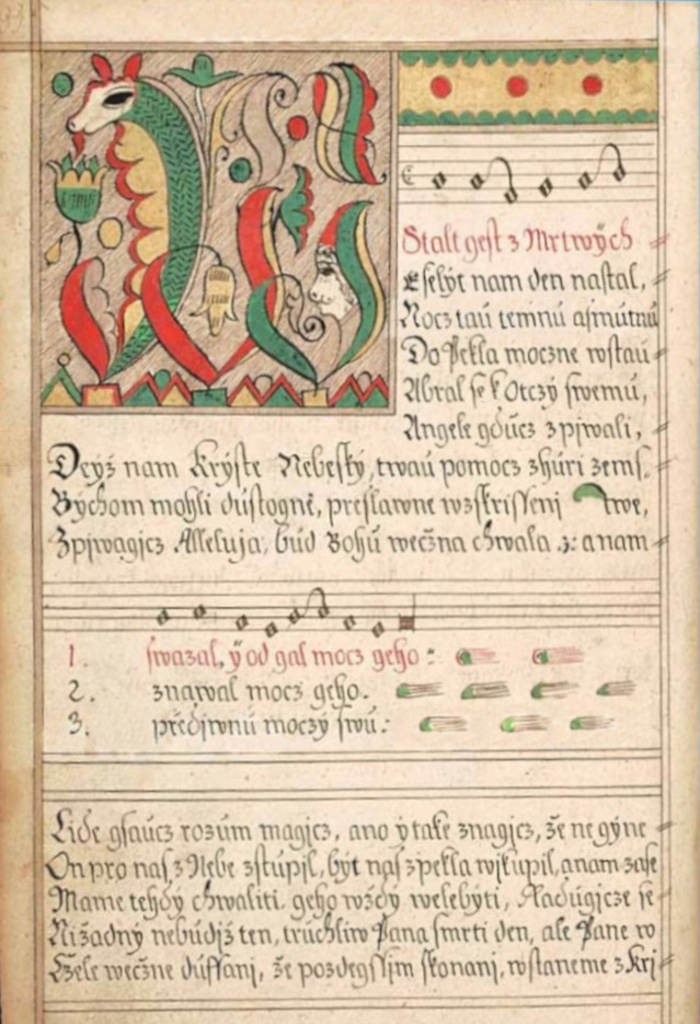 Stalt gest z Mrtwých
Eselýt nam den nastal,
Nocz taú temnú asmútnú
Do Pekla moczne wstaú
Abral se k Otczý swemu,
Angele gdúcz zpjwali,
Deyž nam Krýste Nebeský, twaú pomocz zhúri zems.
Býchom mohli dústogně, preslawne wzkrisseni twe,
Zpjwagicz Alleluja, búd Bohú weczna chwala :z: anam
1. swazal, ý od gal mocz geho :
2. znarwal mocz geho.
3. předjwnú moczý swú :
Lide gsaúcz rozúm magicz, ano ý take znagicz, že ne gýne
On pro nas z Nebe zstúpil, být nas zpekla wikupil, anam zase
Mame tehdý chwaliti, geho wždý welebýti, Radúgicze se
Nižadný nebúdiž ten, trúchliw Pana smrti den, ale Pane w
Czele weczne dúffani, že pozdegssim skonani, wstaneme z Kri